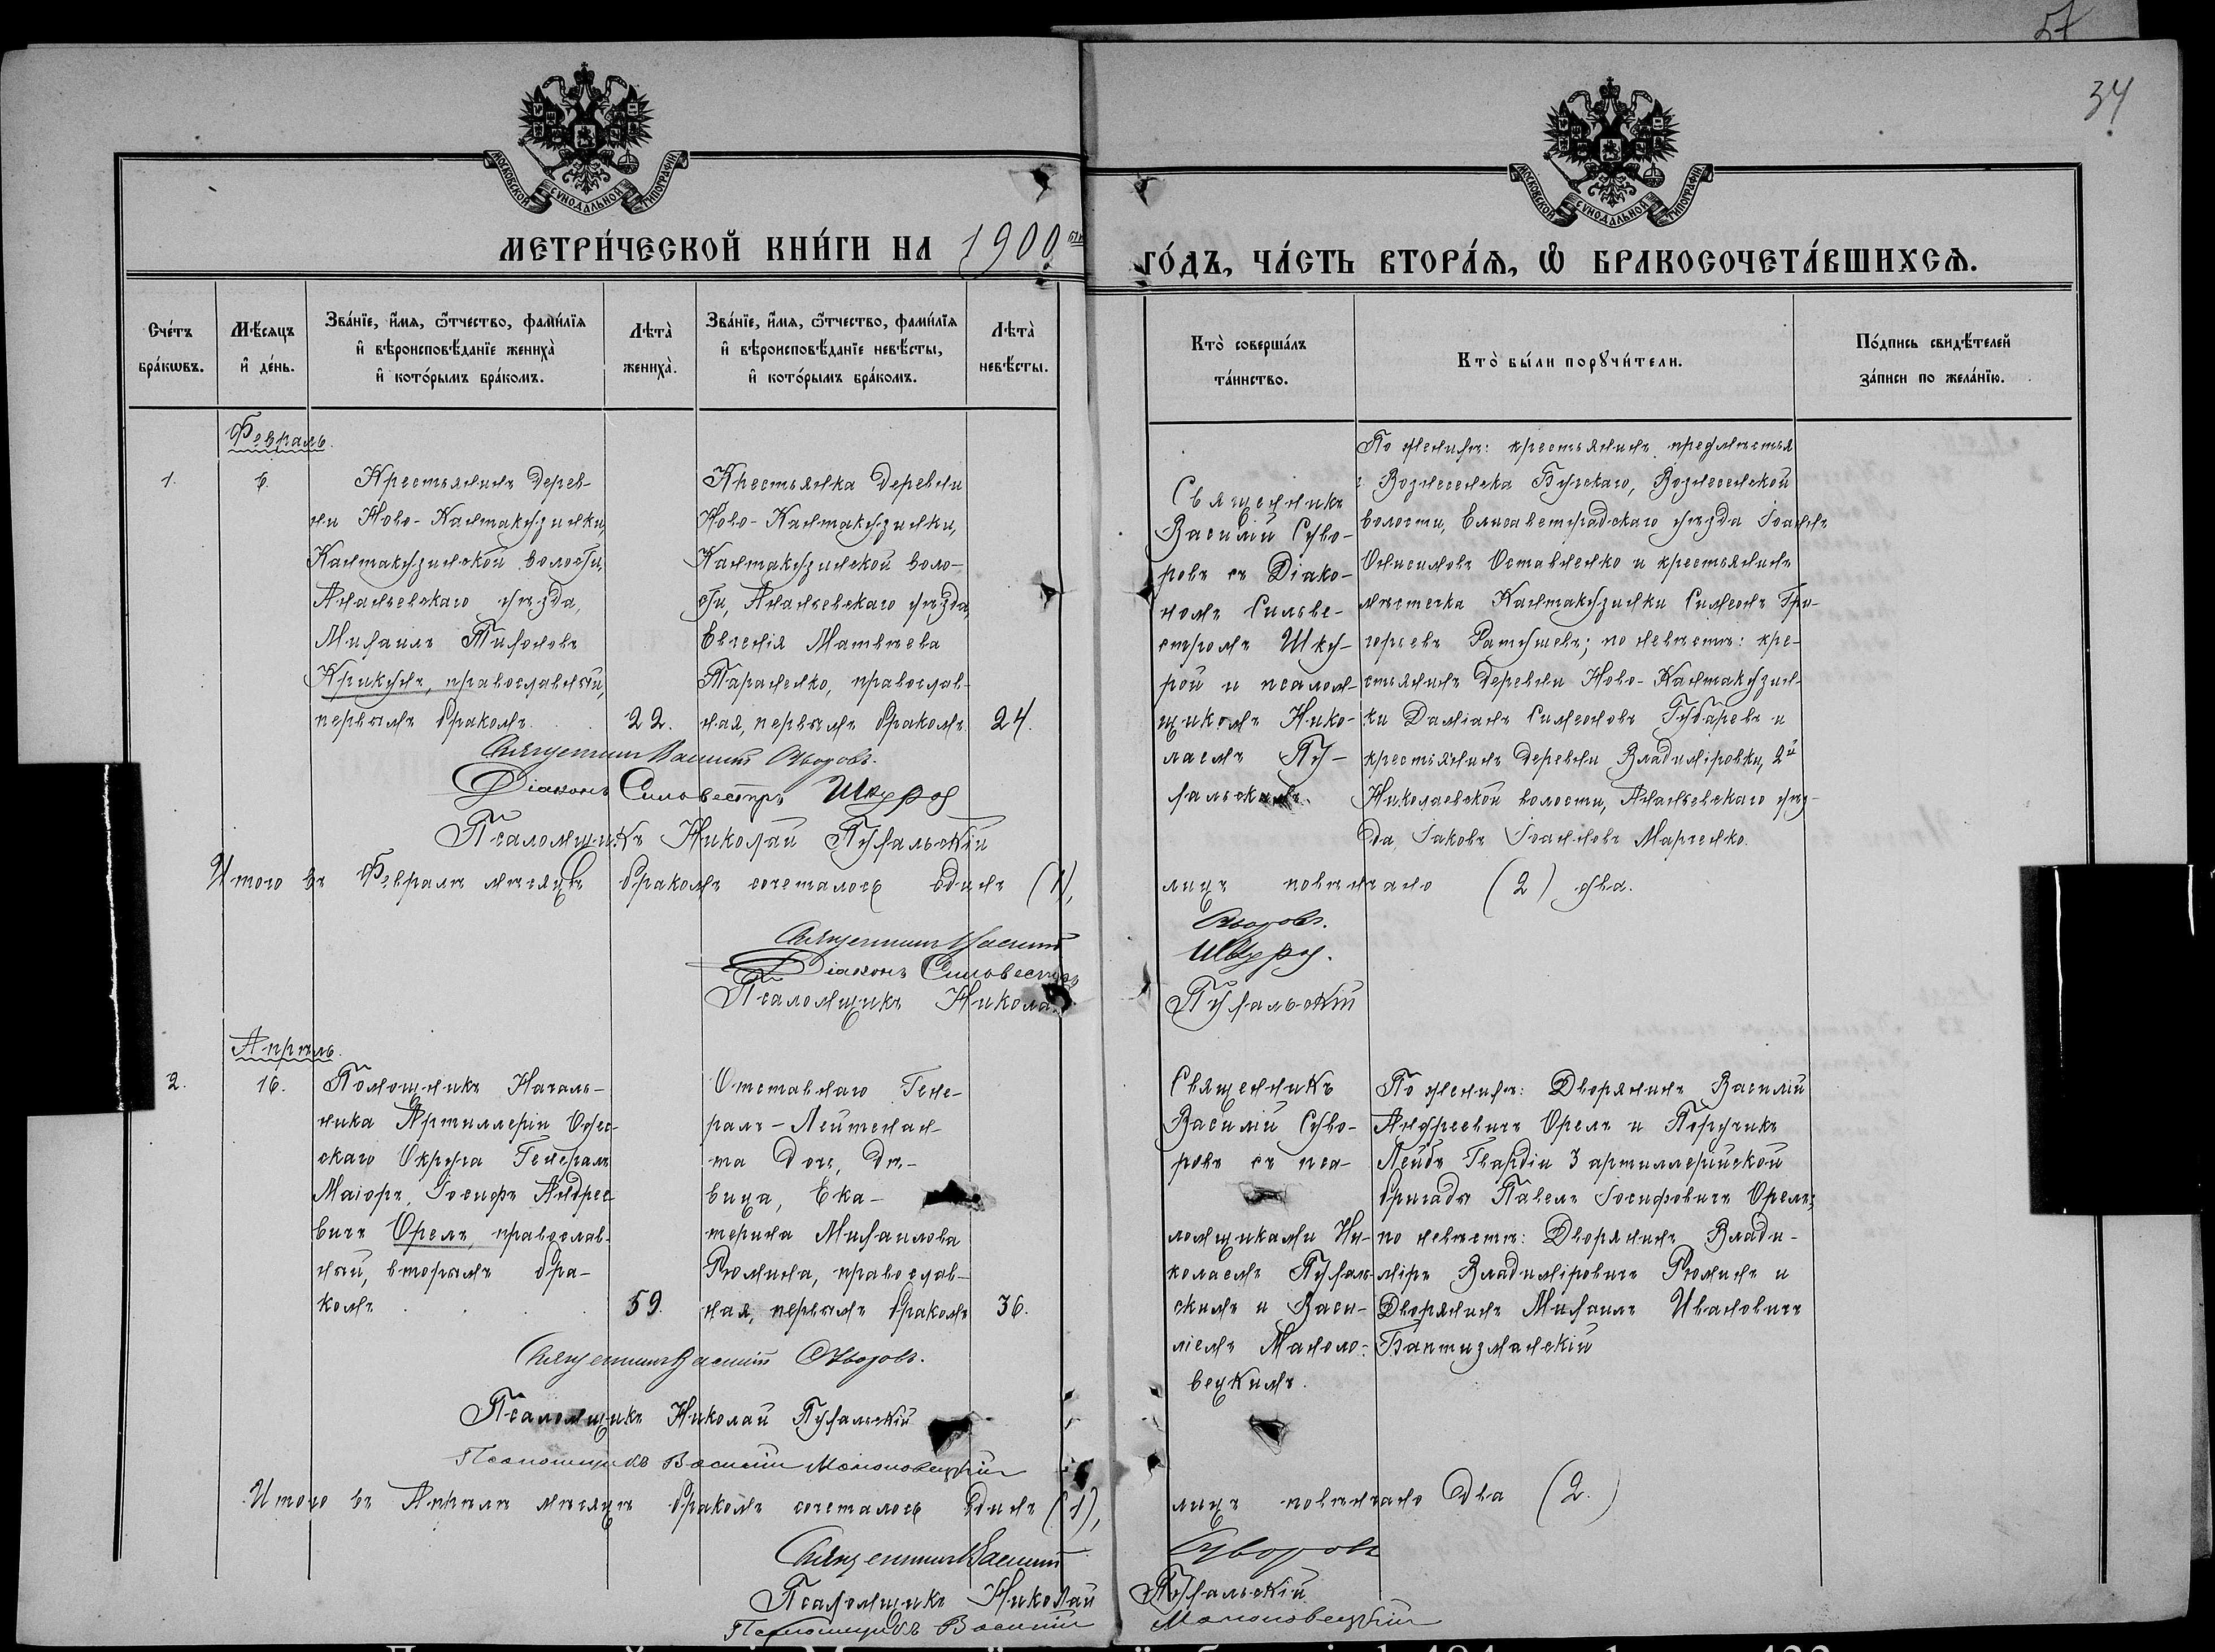 57
34
МОСКОВСКОЙ СѴНОДАЛЬНОЙ ТИПОГРАФІИ
МОСКОВСКОЙ СѴНОДАЛЬНОЙ ТИПОГРАФІИ
МЕТРИ́ЧЕСКОЙ КНИ́ГИ НА 1900
ГО́ДЪ, ЧА́СТЬ ВТОРА́Ѧ, Ѡ БРАКОСОЧЕТА́ВШИХСѦ.
Сче́тъ
бра́кѡвъ.
Мѣ́сяцъ
и де́нь.
Зва́нїе, и́мя, ѻ́тчество, фами́лїя
и вѣроисповѣ́данїе жениха̀
и кото́рымъ бра́комъ.
Лѣта̀
жениха̀.
Зва́нїе, и́мя, ѻ́тчество, фами́лїя
и вѣроисповѣ́данїе невѣ́сты,
и кото́рымъ бра́комъ.
Лѣта̀
невѣ́сты.
Кто̀ соверша́лъ
та́инство.
Кто̀ бы́ли порꙋчи́тели.
По́дпись свидѣ́телей
за́писи по жела́нїю.
Февраль.
1.
6.
Крестьянинъ дерев-
ни Ново-Кантакузинки,
Кантакузинской волости,
Ананьевскаго уѣзда,
Михаилъ Тихоновъ
Крикунъ, православный,
первымъ бракомъ.
22.
Крестьянка деревни
Ново-Кантакузинки,
Кантакузинской воло-
сти, Ананьевскаго уѣзда,
Евгенія Матвѣева
Тараненко, православ-
ная, первымъ бракомъ.
24.
Священникъ
Василій Суво-
ровъ съ Діако-
номъ Сильве-
стромъ Шку-
рой и псалом-
щикомъ Нико-
лаемъ Пу-
хальскимъ.
По женихѣ: крестьянинъ предмѣстья
г. Вознесенска Бугскаго, Вознесенской
волости, Елисаветградскаго уѣзда Іоаннъ
Онисимовъ Остапенко и крестьянинъ
мѣстечка Кантакузинки Симеонъ Гри-
горьевъ Ратушевъ; по невѣстѣ: кре-
стьянинъ деревни Ново-Кантакузин-
ки Даміанъ Симеоновъ Губаревъ и
крестьянинъ деревни Владиміровки, 2й
Николаевской волости, Ананьевскаго уѣз-
да, Іаковъ Іоанновъ Марченко.
Священникъ Василій Суворовъ.
Діаконъ Сильвестръ Шкура
Псаломщикъ Николай Пухальскій
Итого въ Февралѣ мѣсяцѣ бракомъ сочеталось одинъ (1),
лицъ повѣнчано (2) два.
Священникъ Василій
Суворовъ.
Діаконъ Сильвестръ
Шкура.
Псаломщикъ Николай
Пухальскій
Апрѣль.
2.
16.
Помощникъ Началь-
ника Артиллеріи Одес-
скаго Округа Генералъ
Маіоръ, Іосифъ Андрее-
вичъ Орелъ, православ-
ный, вторымъ бра-
комъ
59.
Отставнаго Гене-
ралъ-Лейтенан-
та дочь, дѣ-
вица, Ека-
терина Михаилова
Рюмина, православ-
ная, первымъ бракомъ
36.
Священникъ
Василій Суво-
ровъ съ пса-
ломщиками Ни-
колаемъ Пухаль-
скимъ и Васи-
ліемъ Маноло-
вецкимъ.
По женихѣ: Дворянинъ Василій
Андреевичъ Орелъ и Поручикъ
Лейбъ Гвардіи 3 артиллерійской
бригады Павелъ Іосифовичъ Орелъ;
по невѣстѣ: Дворянинъ Влади-
міръ Владиміровичъ Рюминъ и
Дворянинъ Михаилъ Ивановичъ
Баптизманскій
Священникъ Василій Суворовъ.
Псаломщикъ Николай Пухальскій
Псаломщикъ Василій
Итого въ Апрѣлѣ мѣсяцѣ бракомъ сочеталось одинъ (1),
лицъ повѣнчано два (2.)
Священникъ Василій
Суворовъ
Псаломщикъ Николай
Пухальскій
Псаломщикъ Василій